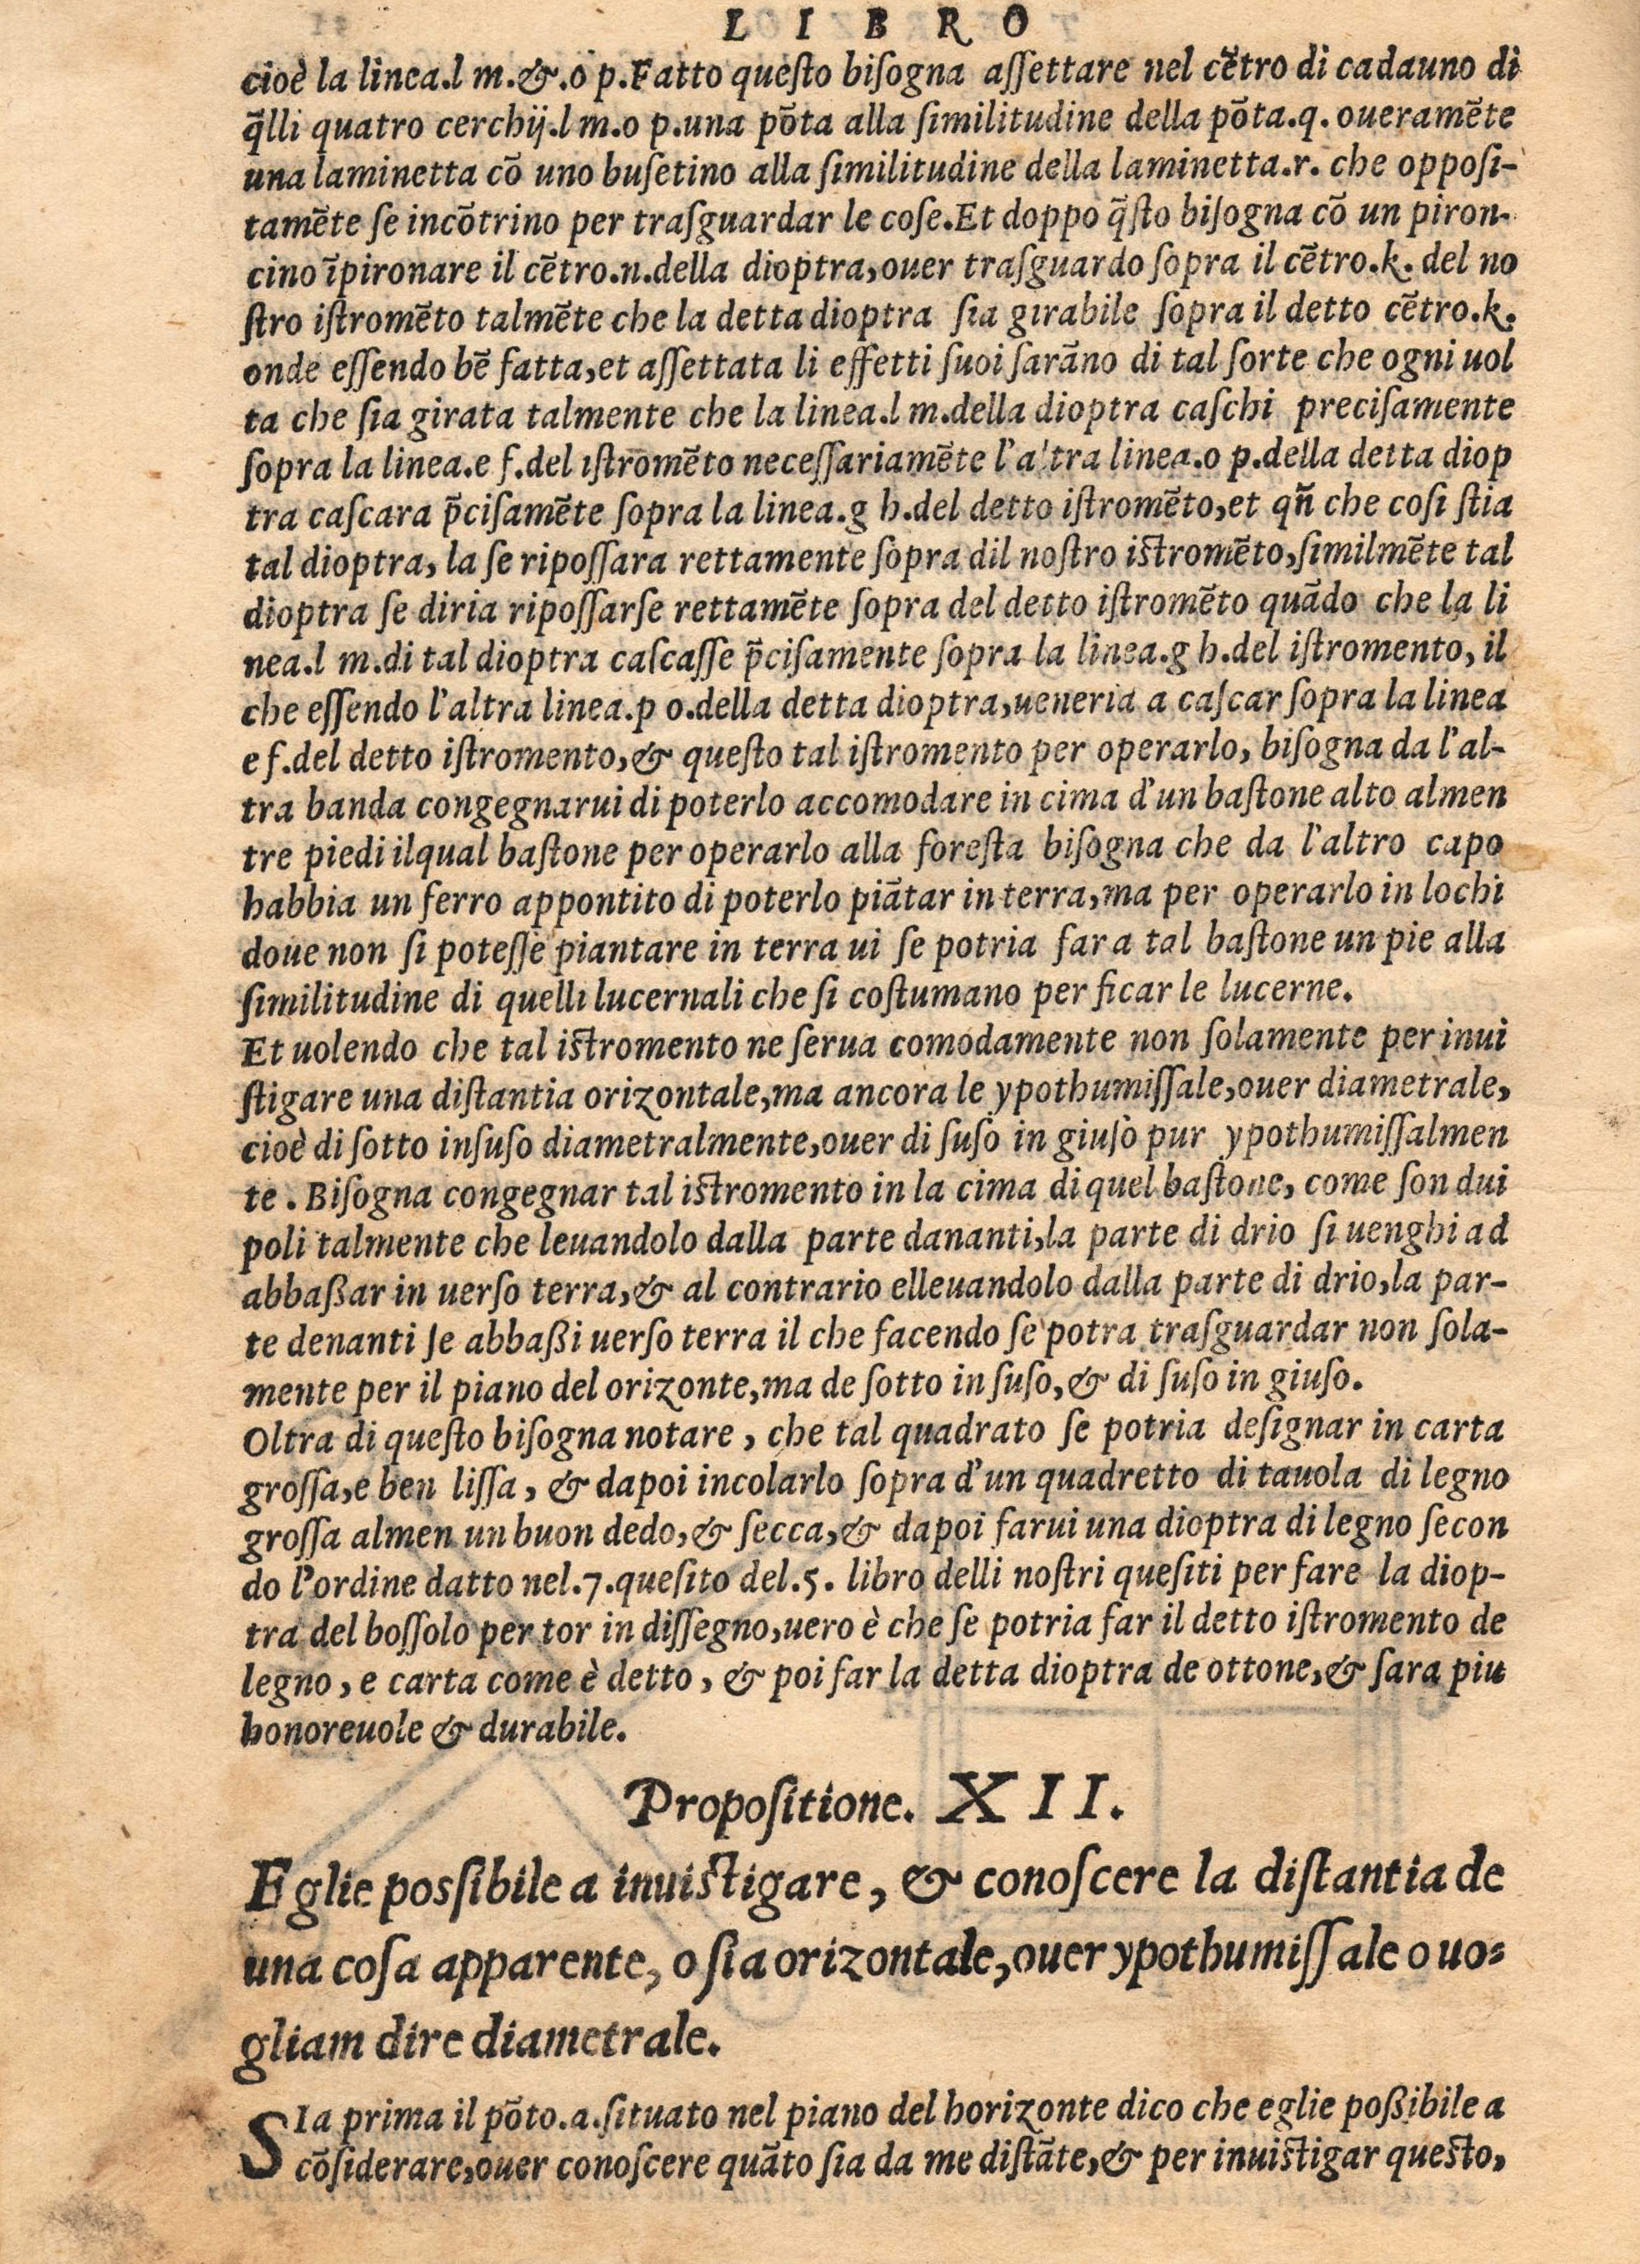 L I B R O
cioè la linea.l m.&.o p.Fatto queſto biſogna aſſettare nel cẽtro di cadauno di
q̃lli quatro cerchij.l m.o p.una põta alla ſimilitudine della põta.q. oueramẽte
una laminetta cõ uno buſetino alla ſimilitudine della laminetta.r. che oppoſi-
tamẽte ſe incõtrino per traſguardar le coſe.Et doppo q̃ſto biſogna cõ un piron-
cino ĩpironare il cẽtro.n.della dioptra,ouer traſguardo ſopra il cẽtro.k. del no
ſtro iſtromẽto talmẽte che la detta dioptra ſia girabile ſopra il detto cẽtro.k.
onde eſſendo bẽ fatta,et aſſettata li effetti ſuoi ſarãno di tal ſorte che ogni uol
ta che ſia girata talmente che la linea.l m.della dioptra caſchi preciſamente
ſopra la linea.e f.del iſtromẽto neceſſariamẽte l'altra linea.o p.della detta diop
tra caſcara p̃ciſamẽte ſopra la linea.g h.del detto iſtromẽto,et qñ che coſi ſtia
tal dioptra, la ſe ripoſſara rettamente ſopra dil noſtro iſtromẽto,ſimilmẽte tal
dioptra ſe diria ripoſſarſe rettamẽte ſopra del detto iſtromẽto quãdo che la li
nea.l m.di tal dioptra caſcaſſe p̃ciſamente ſopra la linea.g h.del iſtromento, il
che eſſendo l'altra linea.p o.della detta dioptra,ueneria a caſcar ſopra la linea
e f.del detto iſtromento,& queſto tal iſtromento per operarlo, biſogna da l'al-
tra banda congegnarui di poterlo accomodare in cima d'un baſtone alto almen
tre piedi ilqual baſtone per operarlo alla foreſta biſogna che da l'altro capo
habbia un ferro appontito di poterlo piãtar in terra,ma per operarlo in lochi
doue non ſi poteſſe piantare in terra ui ſe potria far a tal baſtone un pie alla
ſimilitudine di quelli lucernali che ſi coſtumano per ficar le lucerne.
Et uolendo che tal iſtromento ne ſerua comodamente non ſolamente per inui
ſtigare una diſtantia orizontale,ma ancora le ypothumiſſale,ouer diametrale,
cioè di ſotto inſuſo diametralmente,ouer di ſuſo in giuſo pur ypothumiſſalmen
te . Biſogna congegnar tal iſtromento in la cima di quel baſtone, come ſon dui
poli talmente che leuandolo dalla parte dananti,la parte di drio ſi uenghi ad
abbaßar in uerſo terra,& al contrario elleuandolo dalla parte di drio,la par-
te denanti ſe abbaßi uerſo terra il che facendo ſe potra traſguardar non ſola-
mente per il piano del orizonte,ma de ſotto in ſuſo,& di ſuſo in giuſo.
Oltra di queſto biſogna notare , che tal quadrato ſe potria deſignar in carta
groſſa,e ben liſſa , & dapoi incolarlo ſopra d'un quadretto di tauola di legno
groſſa almen un buon dedo,& ſecca,& dapoi farui una dioptra di legno ſecon
do l'ordine datto nel.7.queſito del.5. libro delli noſtri queſiti per fare la diop-
tra del boſſolo per tor in diſſegno,uero è che ſe potria far il detto iſtromento de
legno , e carta come è detto , & poi far la detta dioptra de ottone,& ſara piu
honoreuole & durabile.
Propoſitione. X I I.
E glie posſibile a inuiſtigare, & conoſcere la diſtantia de
una coſa apparente, o ſia orizontale,ouer ypothumiſſale o uo=
gliam dire diametrale.
SIa prima il põto.a.ſituato nel piano del horizonte dico che eglie poßibile a
cõſiderare,ouer conoſcere quãto ſia da me diſtãte,& per inuiſtigar queſto,